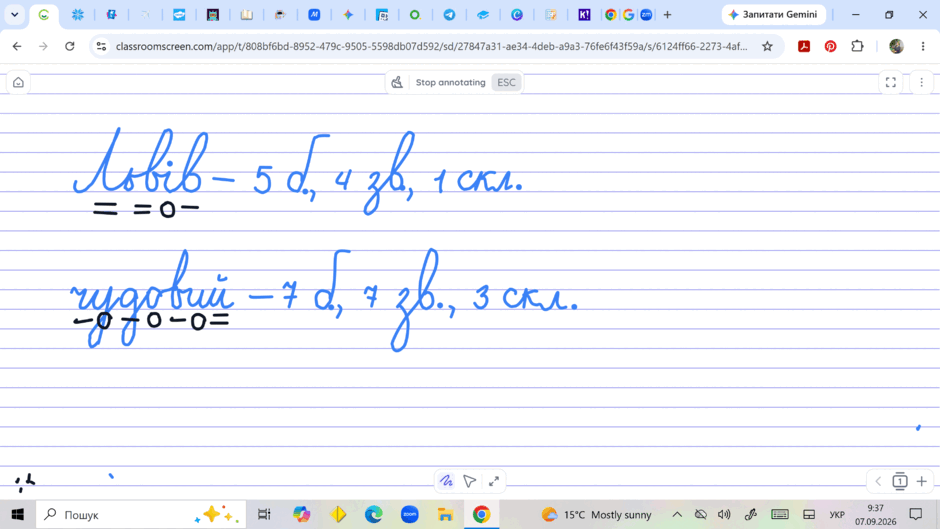 Запитати Gemini
classroomscreen.com/app/t/808bf6bd-8952-479c-9505-5598db07d592/sd/27847a31-ae34-4deb-a9a3-76fe6f43f59a/s/6124ff66-2273-4af...
Stop annotating ESC
Львів – 5 б., 4 зв., 1 скл.
= = о –
чудовий – 7 б., 7 зв., 3 скл.
– о – о – о =
1
Пошук
zoom
15°C Mostly sunny
УКР
9:37
07.09.2026